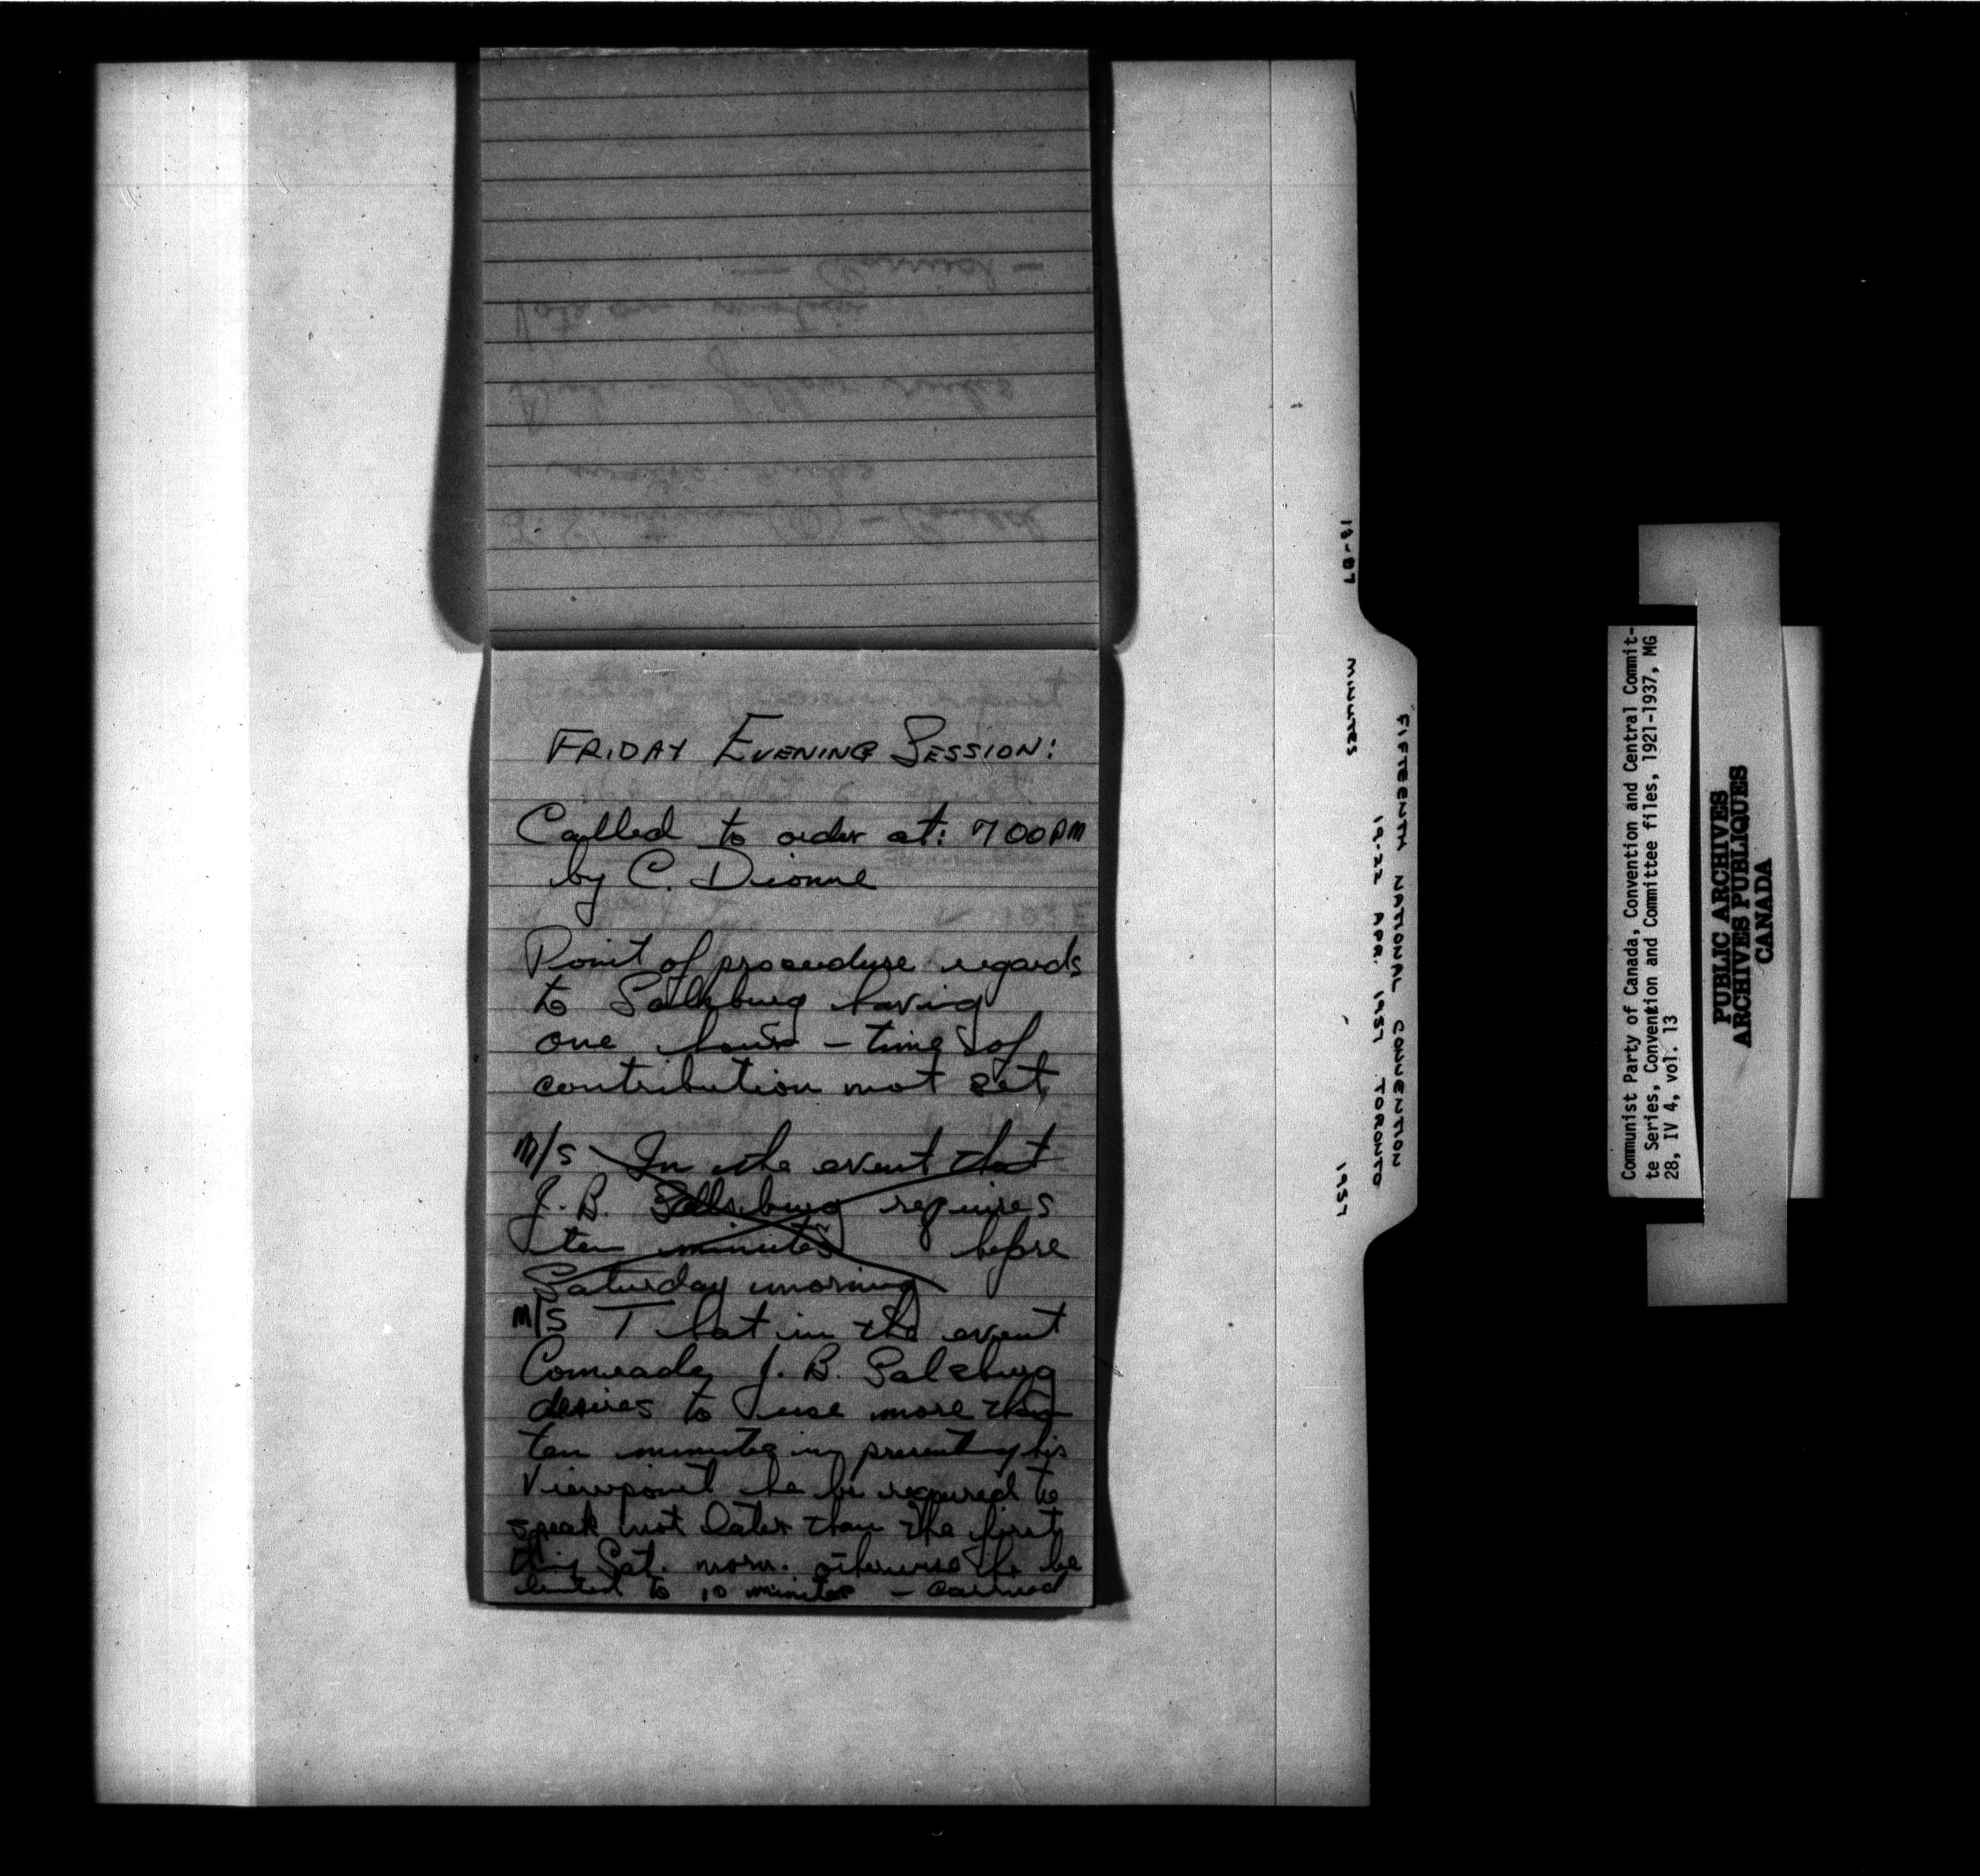 FRIDAY EVENING SESSION:
Called to order at: 7 00 PM
by C. Dionne
Point of procedure regards
to Salsburg having
one hour - time of
contribution not set
M/S In the event that
J. B. Salsburg requires
ten minutes before
Saturday morning
M/S That in the event
Comrade J. B. Salsburg
desires to use more than
ten minutes in presenting his
Viewpoint he be required to
speak not later than the first
thing Sat. morn. otherwise he be
limited to 10 minutes - carried
13-07
MINUTES
1957
FIFTEENTH NATIONAL CONVENTION
19-22 APR. 1957 TORONTO
Communist Party of Canada, Convention and Central Commit-
te Series, Convention and Committee files, 1921-1937, MG
28, IV 4, vol. 13
PUBLIC ARCHIVES
ARCHIVES PUBLIQUES
CANADA